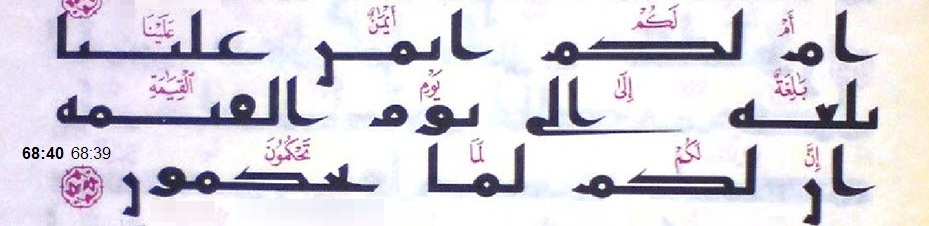 أَمْ لَكُمْ أَيْمَٰنٌ عَلَيْنَا
ام لكم ايمن علينا
بَٰلِغَةٌ إِلَىٰ يَوْمِ ٱلْقِيَٰمَةِ
بلغه الى يوم القيمه
إِنَّ لَكُمْ لَمَا تَحْكُمُونَ
ان لكم لما تحكمون
68:40 68:39